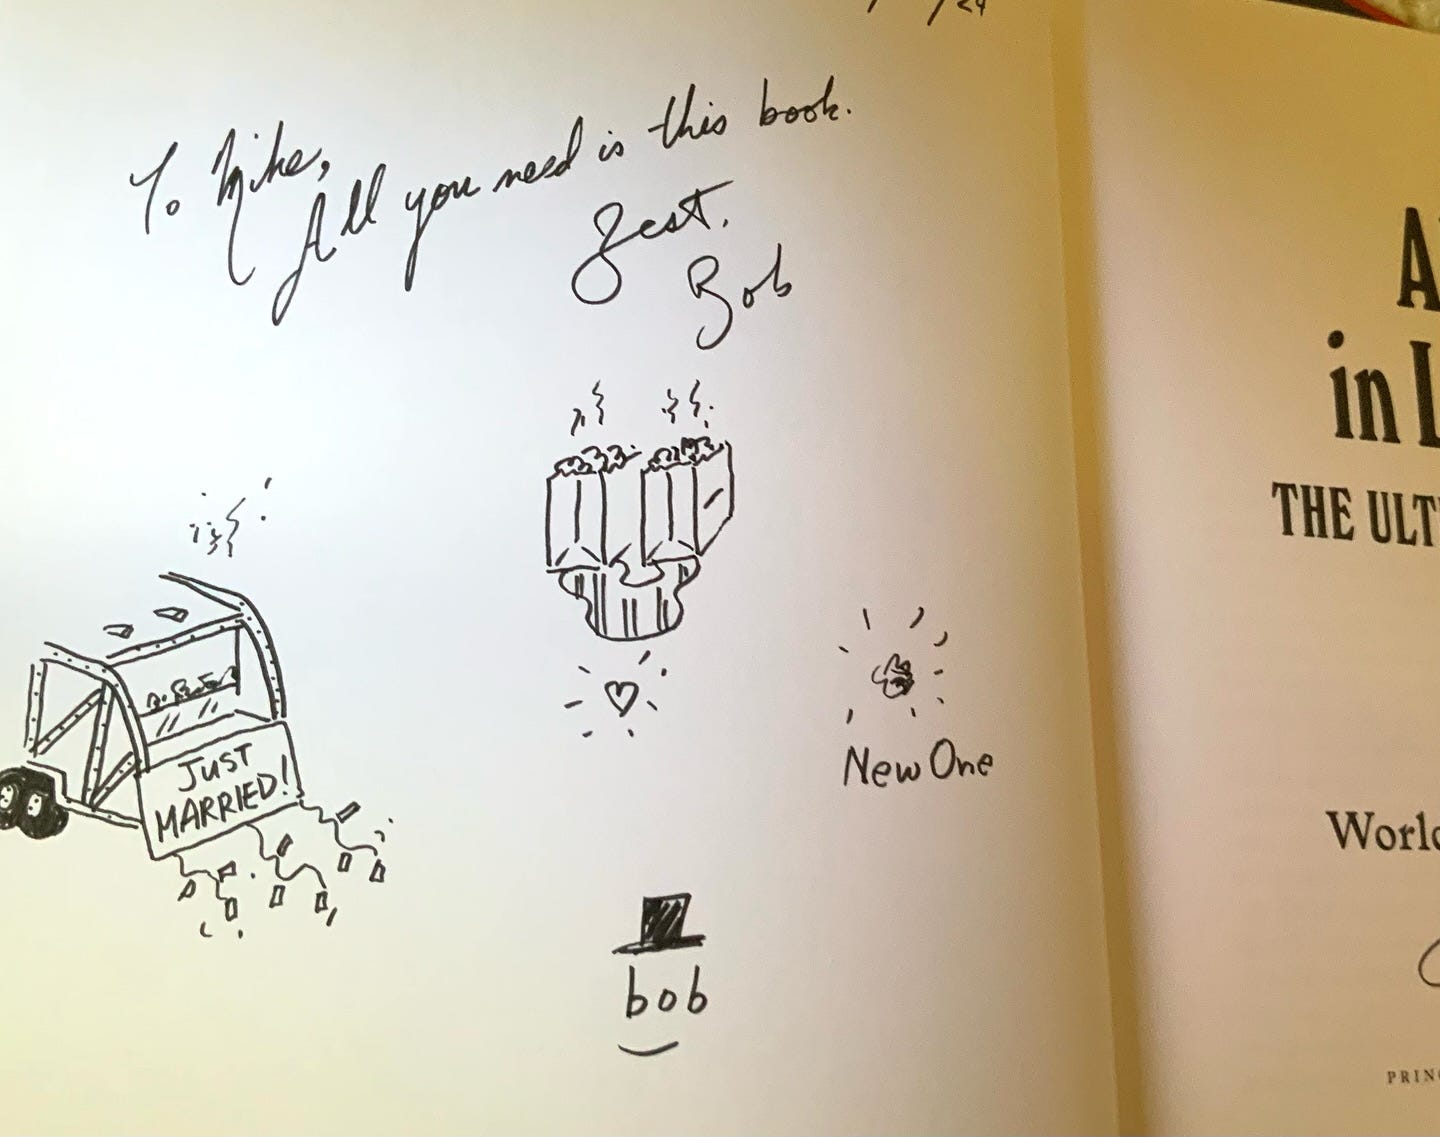 /24
To Mike,
All you need is this book.
Best.
Bob
JUST
MARRIED!
New One
bob
A
in L
THE ULT
World
PRINC